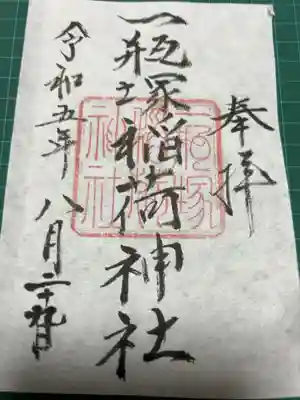 奉拝
一瓶塚稲荷神社
令和五年 八月二十九日